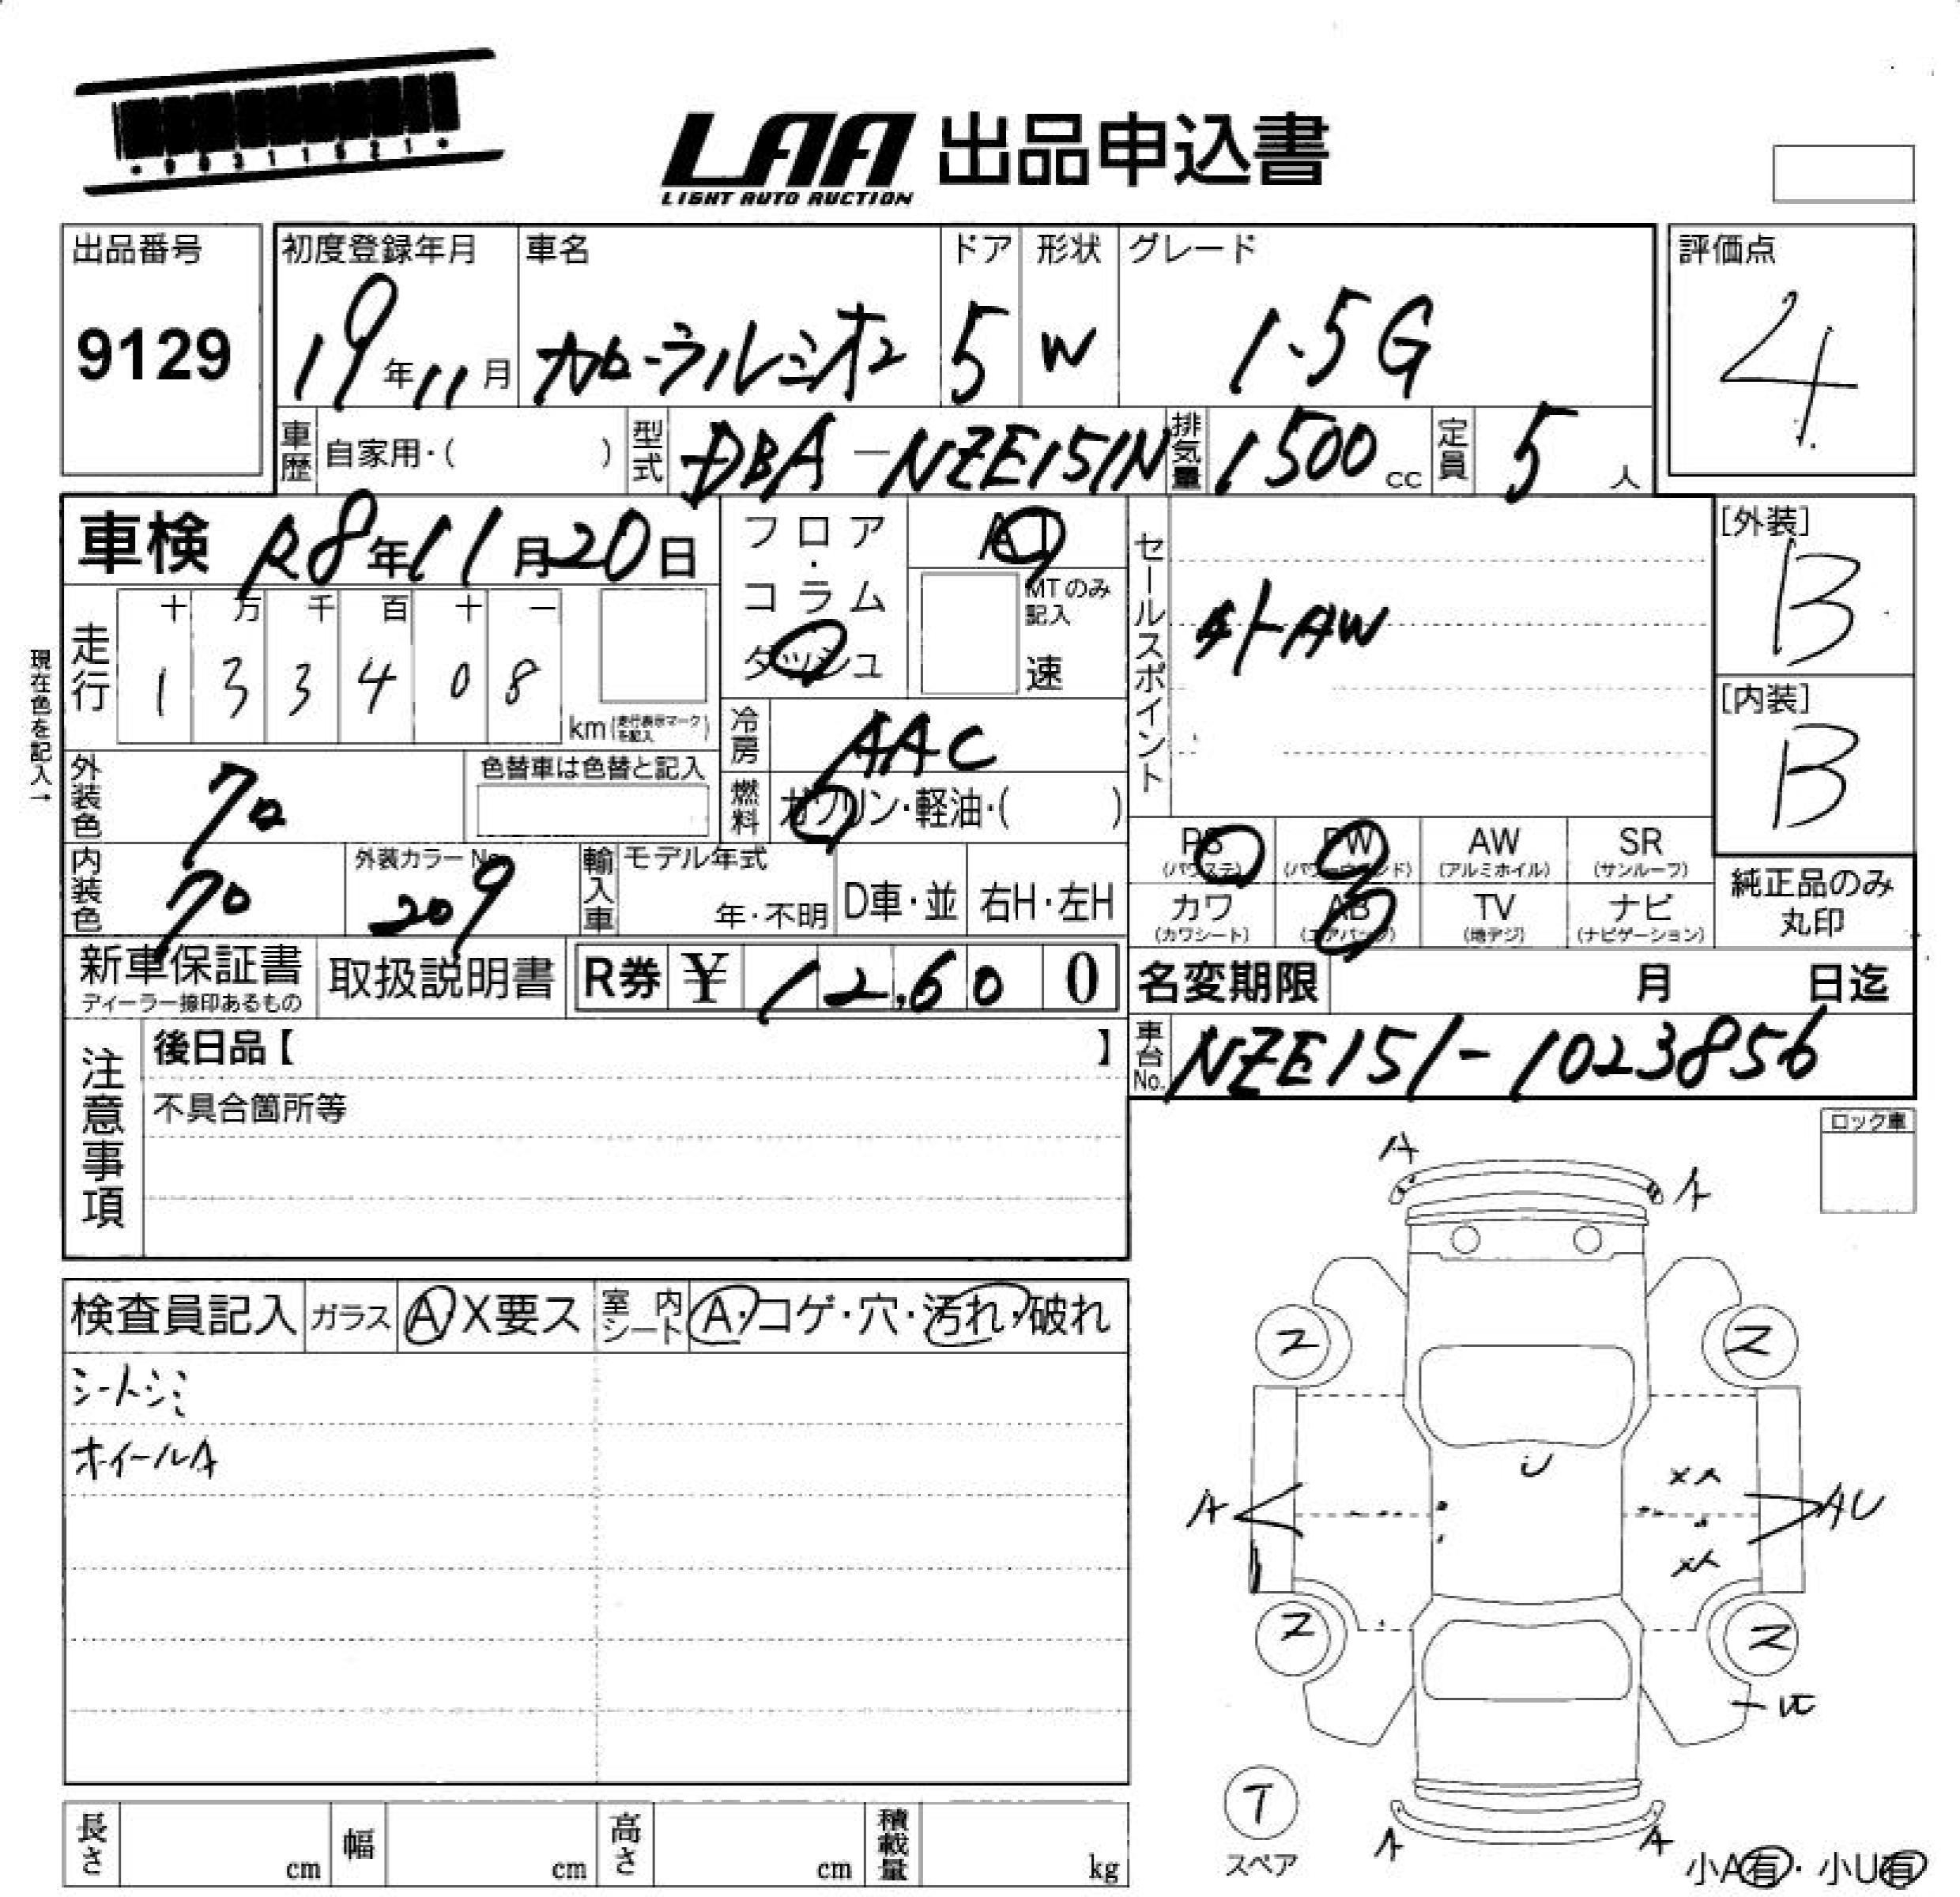 LAA 出品申込書
LIGHT AUTO AUCTION
出品番号
9129
初度登録年月
19年11月
車名
カローラルミオン
ドア
5
形状
W
グレード
1.5G
評価点
4
車歴 自家用・( )
型式 DBA-NZE151N
排気量 1500cc
定員 5人
車検 R8年11月20日
フロア・コラム
ダッシュ
AT
MTのみ記入
速
現在色を記入→
走行 十 万 千 百 十 一
1 3 3 4 0 8
km(走行表示マークを記入)
冷房 AAC
燃料 ガソリン・軽油・( )
セールスポイント
外AW
[外装]
B
[内装]
B
外装色 クロ
色替車は色替と記入
内装色 クロ
外装カラーNo.
209
輸入車 モデル年式
年・不明 D車・並 右H・左H
PS AW SR
PW
(パワステ) (パワーウインド) (アルミホイル) (サンルーフ)
カワ AB TV ナビ
(カワシート) (エアバッグ) (地デジ) (ナビゲーション)
純正品のみ
丸印
新車保証書
ディーラー捺印あるもの
取扱説明書
R券 ¥ 12,600
名変期限 月 日迄
車台No. NZE151-1023856
注意事項
後日品【 】
不具合箇所等
ロック車
検査員記入 ガラス A X要ス 室内シート A・コゲ・穴・汚れ・破れ
シートシミ
ホイールA
A
A
2 2
U
A
AU
2 2
T
スペア
A
A
小A有・小U有
長さ cm 幅 cm 高さ cm 積載量 kg